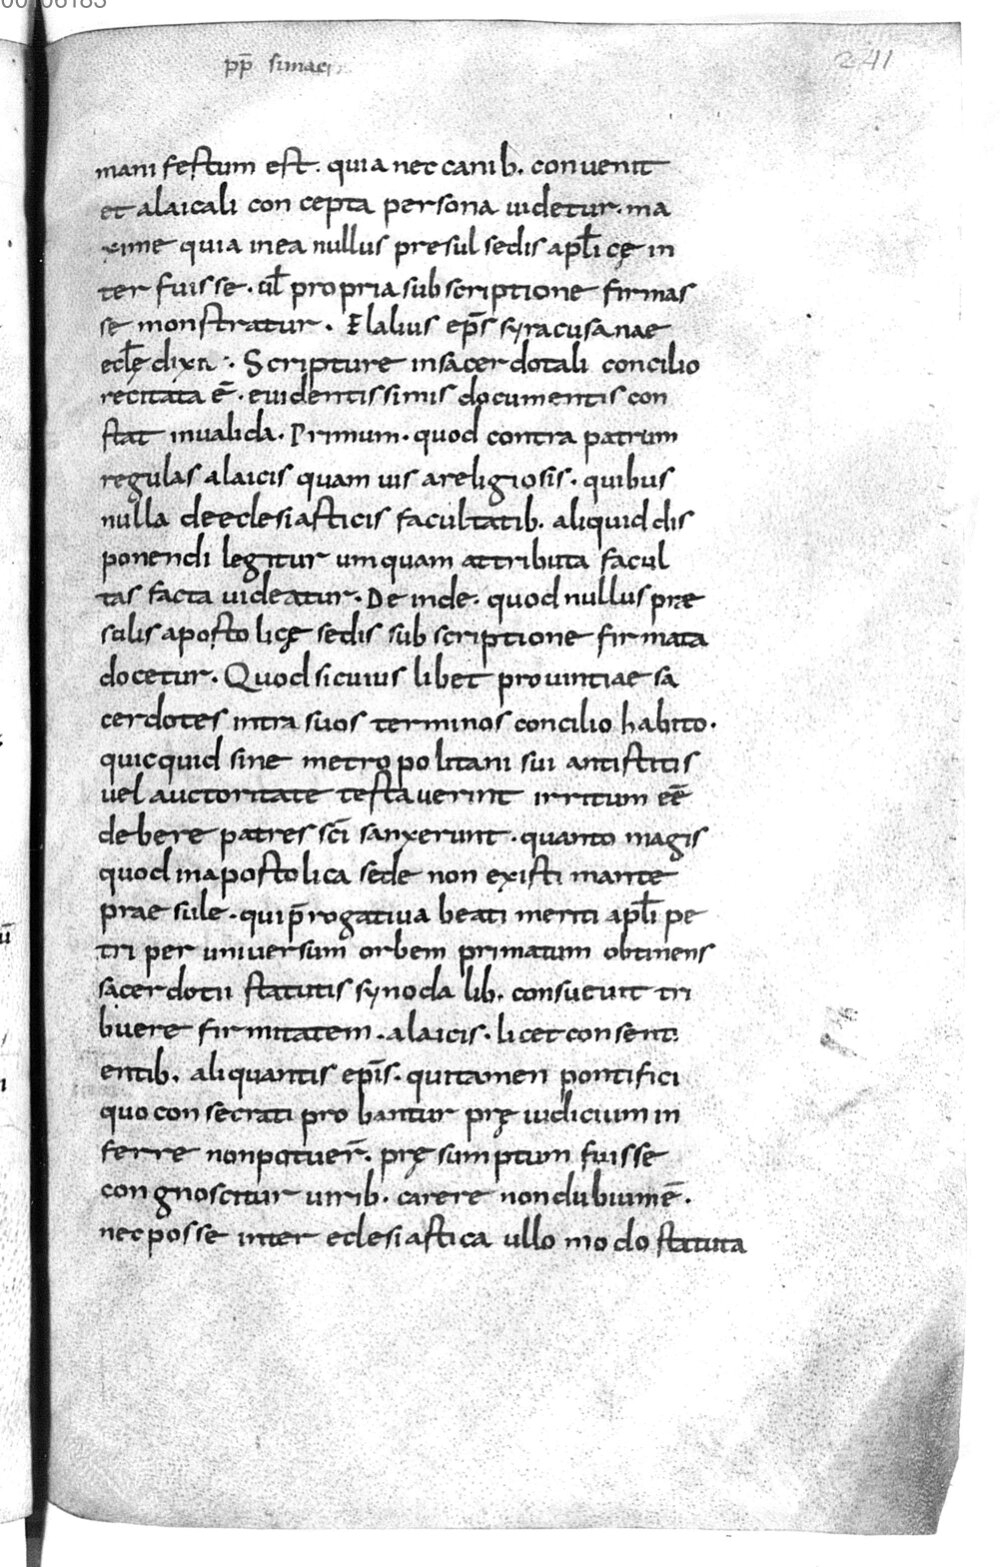 pp̄ simaci
241
manifestum est. quia nec canib. conuenit
et alaicali concepta persona uidetur. ma
xime quia inea nullus presul sedis apl̄icę in
terfuisse. ul̄ propria subscriptione firmas
se monstratur. Elalius ep̄s syracusanae
ecl̄ę dixit. Scripture insacerdotali concilio
recitata ē. euidentissimis documentis con
stat inualida. Primum. quod contra patrum
regulas alaicis quam uis areligiosis. quibus
nulla deeclesiasticis facultatib. aliquid dis
ponendi legitur umquam attributa facul
tas facta uideatur. Deinde. quod nullus prae
sulis apostolicę sedis subscriptione firmata
docetur. Quod sicuius libet prouintiae sa
cerdotes intra suos terminos concilio habito.
quicquid sine metropolitani sui antistitis
uel auctoritate testauerint irritum eē
debere patres sc̄i sanxerunt. quanto magis
quod inapostolica sede non existimante
praesule. qui p̄rogatiua beati meriti apl̄i pe
tri per uniuersum orbem primatum obtinens
sacerdotii statutis synoda lib. consueuit tri
buere firmitatem. alaicis. licet consent
entib. aliquantis ep̄is. quitamen pontifici
quo consecrati probantur prę iudicium in
ferre nonpotuer̄. pręsumptum fuisse
congnoscitur uirib. carere nondubiumē.
nec posse inter eclesiastica ullo modo statuta